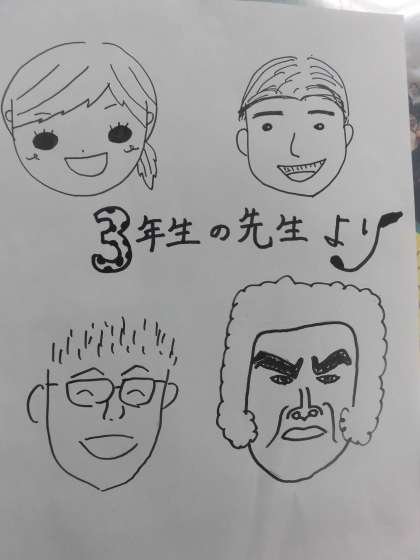 3年生の先生より